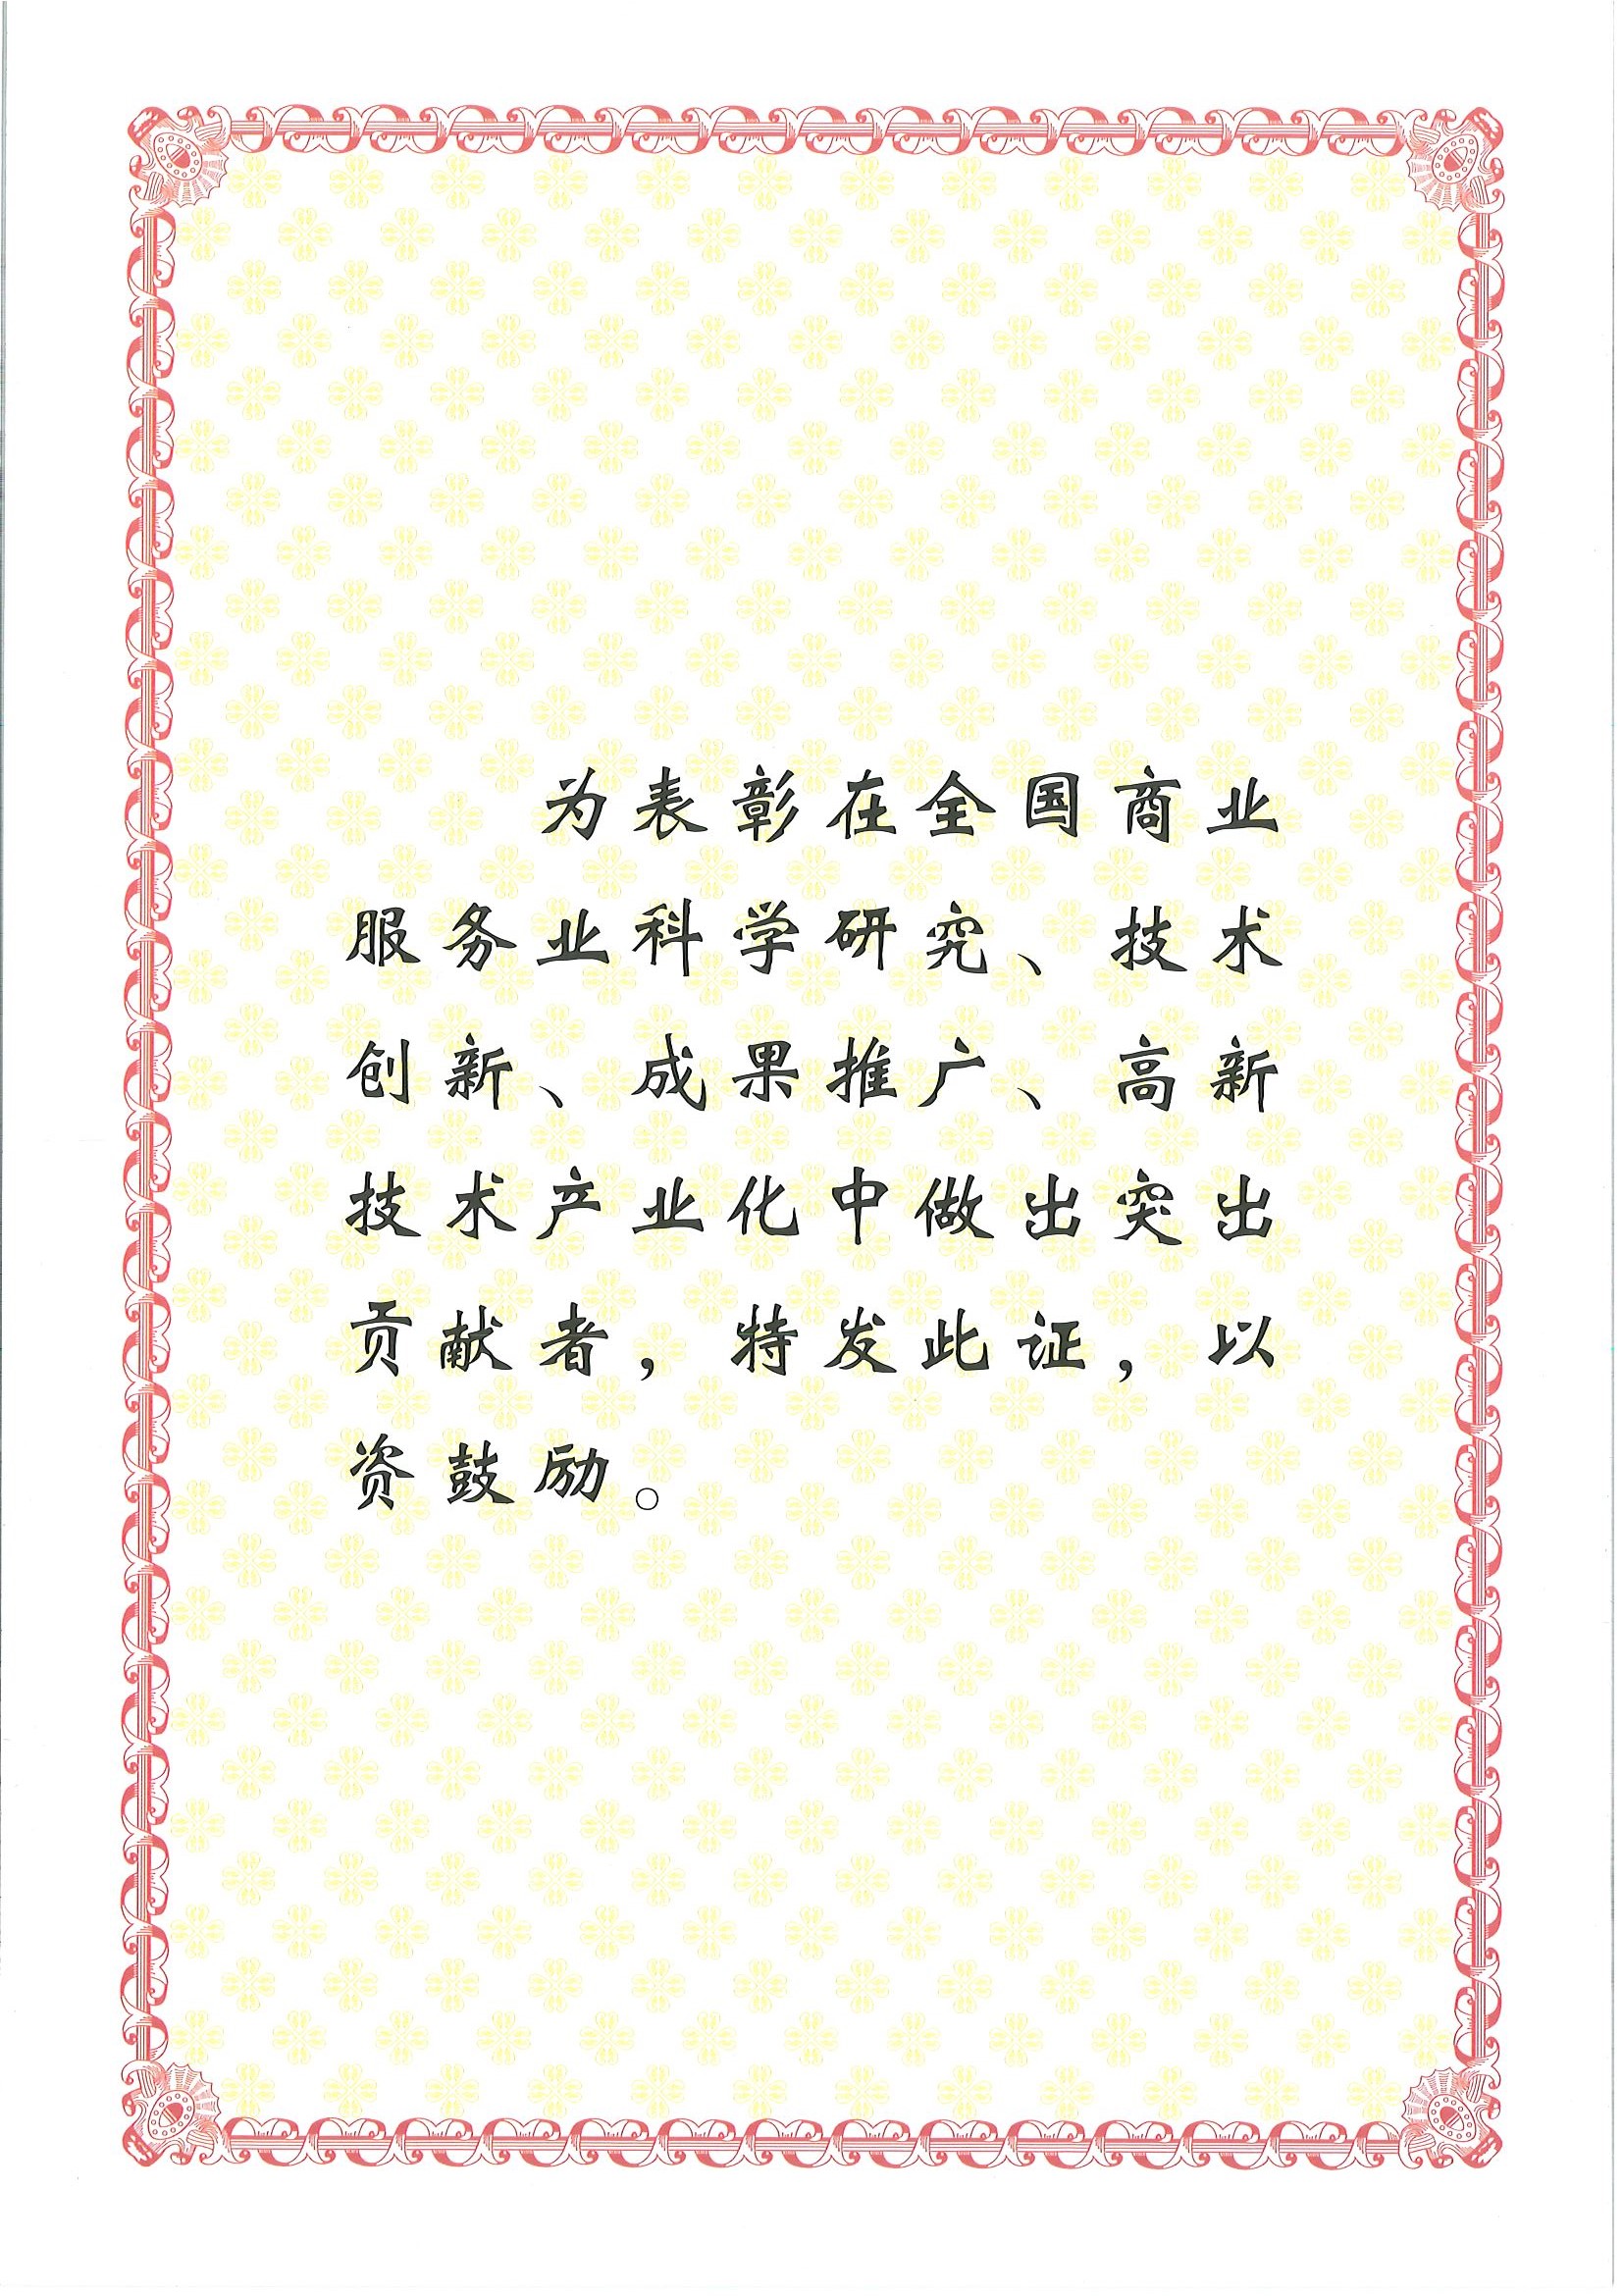 为表彰在全国商业
服务业科学研究、技术
创新、成果推广、高新
技术产业化中做出突出
贡献者，特发此证，以
资鼓励。